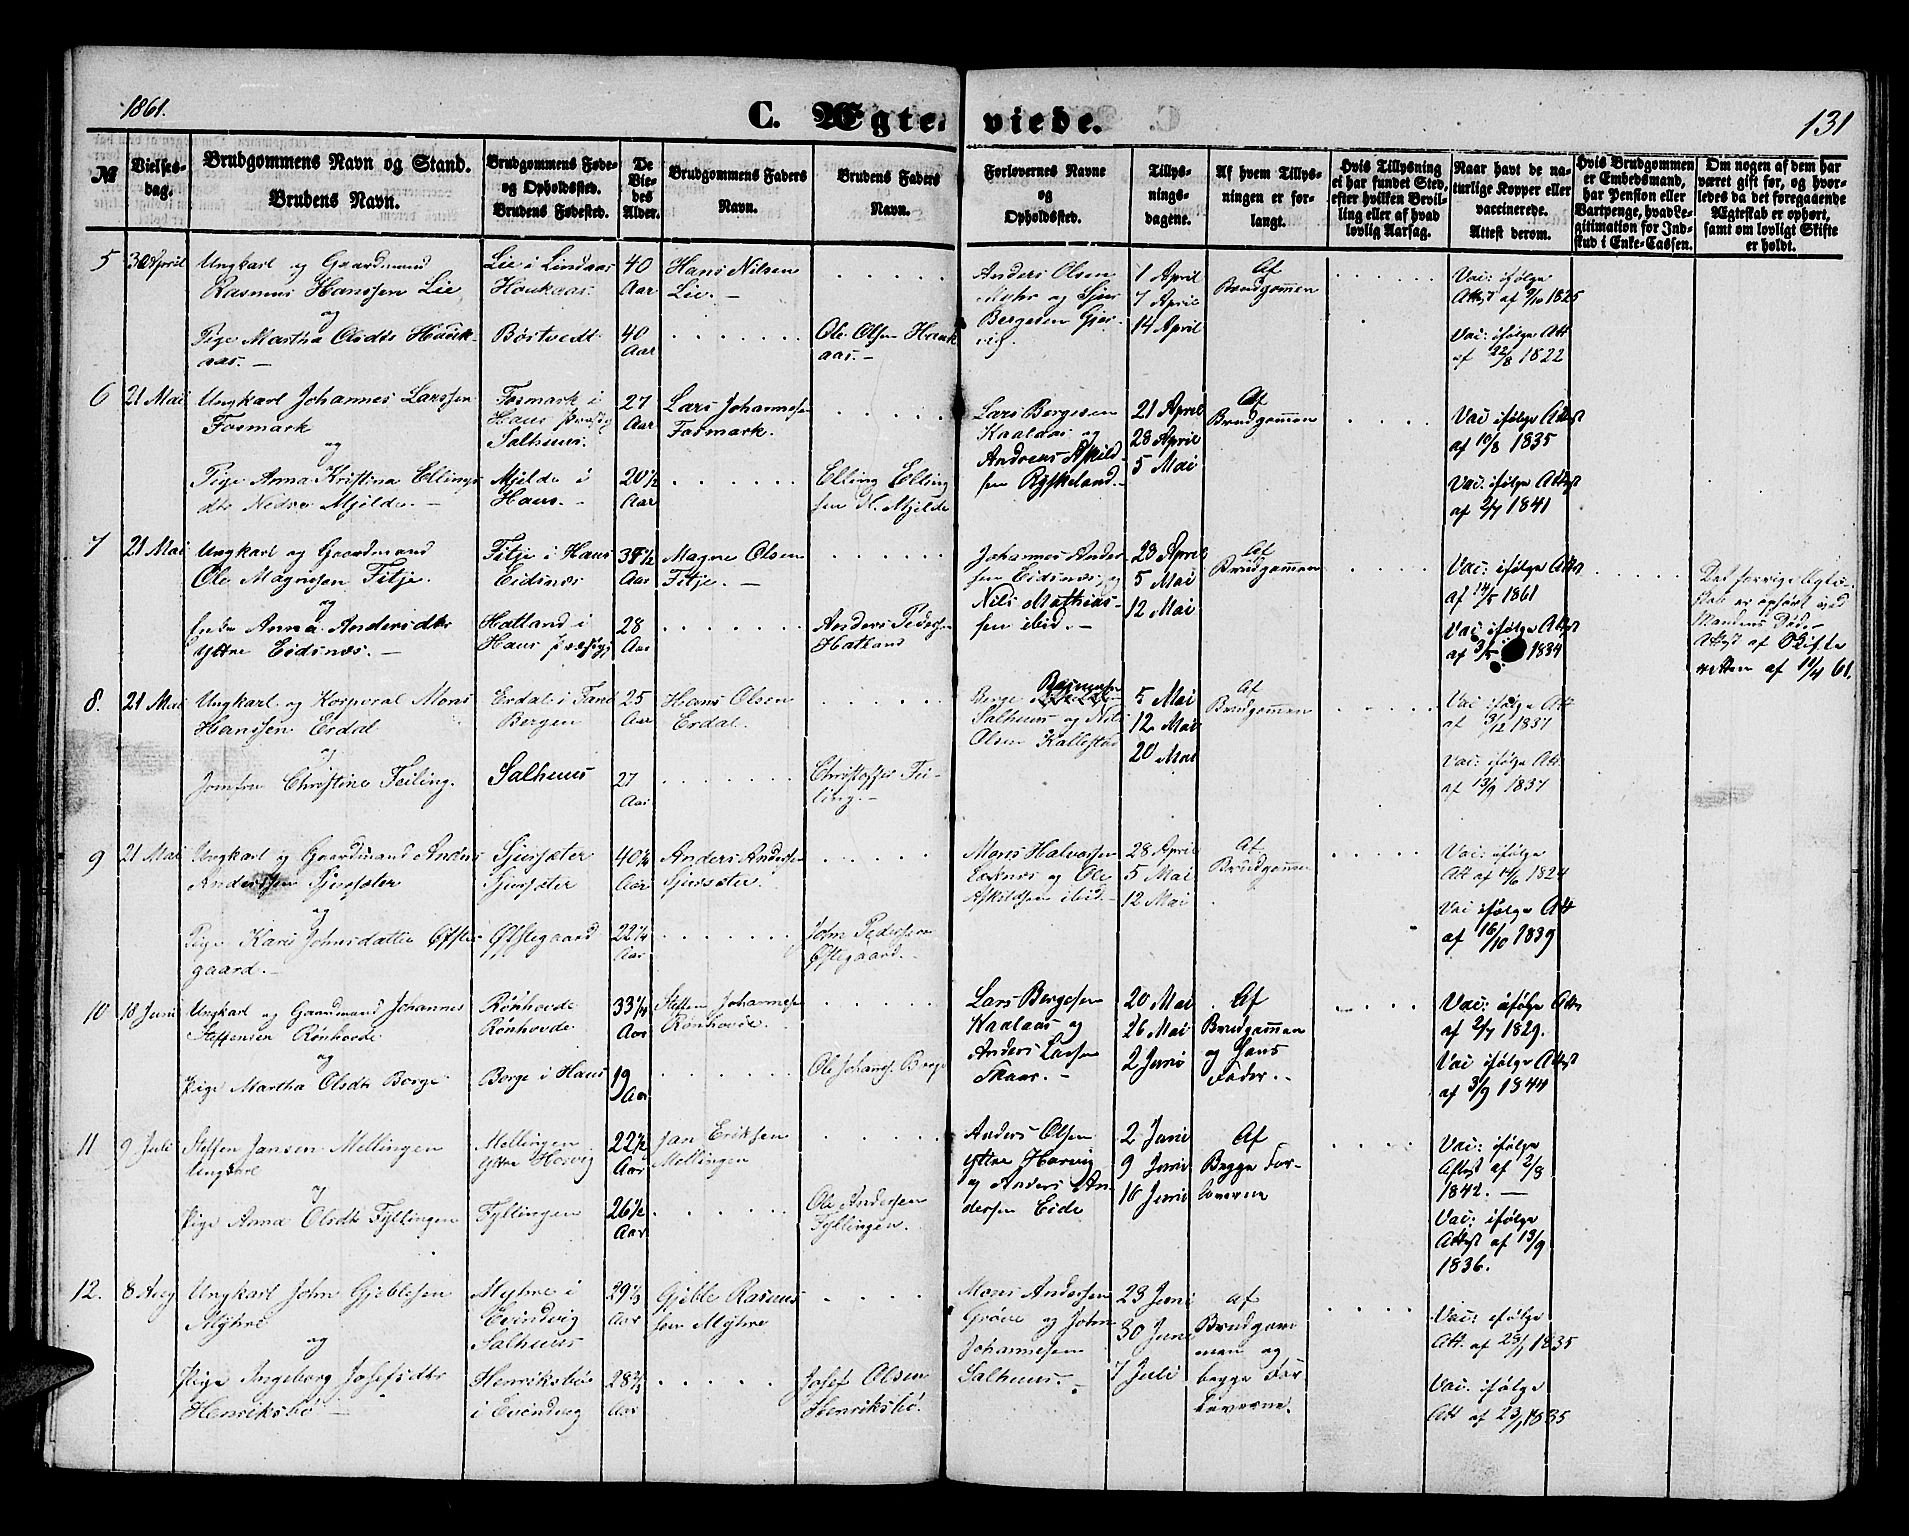 1861.
C. Ægteviede.
131
№
Vielsesdag.
Brudgommens Navn og Stand.
Brudens Navn.
Brudgommens Føde-
og Opholdssted.
Brudens Fødested.
De
Vie-
des
Alder.
Brudgommens Faders
Navn.
Brudens Faders
Navn.
Forlovernes Navne
og
Opholdssted.
Tillys-
nings-
dagene.
Af hvem Tillys-
ningen er for-
langt.
Hvis Tillysning
ei har fundet Sted,
efter hvilken Bevil-
ling eller af hvad
lovlig Aarsag.
Naar havt de na-
turlige Kopper eller
vaccinerede.
Attest derom.
Hvis Brudgommen
er Embedsmand,
har Pension eller
Vartpenge, hvad Le-
gitimation for Ind-
skud i Enke-Cassen.
Om nogen af dem har
været gift før, og hvor-
ledes da det foregaaende
Ægteskab er ophørt,
samt om lovligt Skifte
er holdt.
5 30 April Ungkarl og Gaardmand
Rasmus Hanssen Lie
og
Pige Martha Olsdtr Hauk-
aas. —
Lie i Lindaas
Haukaas.
Børtvedt
40
Aar
40
Aar
Hans Nilsen
Lie. —
Ole Olsen Hauk
aas. —
Anders Olsen
Myhr og Sjur
Bergesen Gjer-
vig.
1 April
7 April
14 April
Af
Brudgommen
Vac: ifølge
Attest af 9/10 1825
Vac: ifølge Att
af 22/8 1822
6 21 Mai Ungkarl Johannes Larssen
Fosmark
og
Pige Anna Kristina Ellings
dtr Nedre Mjelde. —
Fosmark i
Haus
Salhuus.
Mjelde i
Haus. —
27
Aar
20 1/2
Aar
Lars Johannesen
Fosmark.
Elling Elling
sen N. Mjelde
Lars Bergesen
Kaalaas og
Andreas Askild-
sen Ryskeland —
21 April
28 April
5 Mai
Af
Brudgommen
Vac: ifølge Attest
af 10/8 1835
Vac: ifølge Attest
af 2/7 1841
7 21 Mai Ungkarl og Gaardmand
Ole Magnesen Fitje.
og
Enke Anna Andersdtr
Yttre Eidsnes. —
Fitje i Haus
Eidsnes
Hatland i
Haus
Aar
28
Aar
Magne Olsen
Fitje. —
Anders Peders-
Hatland
Johannes Ander
sen Eidsnes og
Nils Mathias-
sen ibid. —
28 April
5 Mai
12 Mai
Af
Brudgommen
Vac: ifølge Attst
af 14/5 1861
Vac: ifølge Attst
1834
Det forrige Ægte-
skab er ophørt ved
Mandens Død. —
Attest af Skifte
retten af 19/4 61.
8. 21 Mai Ungkarl og Korporal Mons
Hanssen Erdal
og
Jomfru Christine Teiling.
Erdal i
Bergen
Salhuus
25
Aar
27
Aar
Hans Olsen
Erdal.
Christoffer Tei-
ling. —
Berge Rasmussen
Salhuus og Nils
Olsen Kallestad
5 Mai
12 Mai
20 Mai
Af
Brudgommen
Vac: ifølge Att
af 3/12 1837
Vac: ifølge Att.
af 13/9 1837
9 21 Mai Ungkarl og Gaardmand Anders
Anderssen Sjursæter
og
Pige Kari Johnsdatter Øfste-
gaard. —
Sjursæter
Sjursæter
Øfstegaard
40 1/4
Aar
22 1/4
Aar
Anders Andersen
Sjursæter.
John Pedersen
Øfstegaard. —
Mons Halvorsen
og Ole
Askildsen ibid. —
28 April
5 Mai
12 Mai
Af
Brudgommen
Vac: ifølge
Att af 14/6 1824
Vac ifølge Att
af 16/10 1839
10 18 Juni Ungkarl og Gaardmand Johannes
Steffensen Rønhovde
og
Pige Martha Olsdtr Borge
Rønhovde
Rønhovde.
Borge i Haus
33 1/4
Aar
19
Aar
Steffen Johannesen
Rønhovde.
Ole Johans. Borge
Lars Bergesen
Kaalaas og
Anders Larsen
Skaar. —
20 Mai
26 Mai
2 Juni
Af
Brudgommen
og Hans
Fader. —
Vac: ifølge Attst
af 2/7 1829.
Vac ifølge Attest
af 3/9 1844
11 9 Juli Steffen Jansen Mellingen
Ungkarl
og
Pige Anna Olsdtr Fyllingen
Mellingen
Yttre Horvig
Fyllingen
22 1/2
Aar
26 1/2
Aar
Jan Eriksen
Mellingen
Ole Andersen
Fyllingen.
Anders Olsen
Yttre Horvig
og Anders An-
dersen Eide
2 Juni
9 Juni
16 Juni
Af
Begge For-
loverne
Vac: ifølge
Attest af 2/8
1842. —
Vac: ifølge
Attest af 13/9
1836.
12. 8 Aug Ungkarl John Gjeblesen
Myhre
og
Pige Ingeborg Josefsdtr
Henriksbø —
Myhre i
Evindvig
Salhuus
Henriksbø
i Evindvig
29 1/3
Aar
28 2/3
Aar
Gjeble Rasmus
sen Myhre
Josef Olsen
Henriksbø.
Mons Andersen
Grøve og John
Johannesen
Salhuus. —
23 Juni
30 Juni
7 Juli
af
Brudgom
men og
begge For
loverne.
Vac: ifølge
Att. af 23/1 1835
Vac. ifølge
Att af 23/1 1835